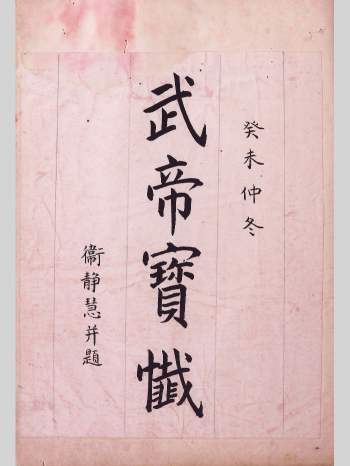 癸未仲冬
武帝寶懺
衞靜慧并題